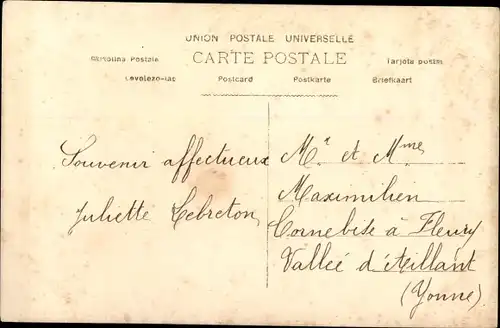 UNION POSTALE UNIVERSELLE
CARTE POSTALE
Cartolina Postale
Tarjota postal
Levelezo-lap
Postcard
Postkarte
Briefkaart
Souvenir affectueux
Juliette Lebreton
Mr et Mmes
Maximilien
Cornebise à Fleury
Vallée d'Aillant
(Yonne)